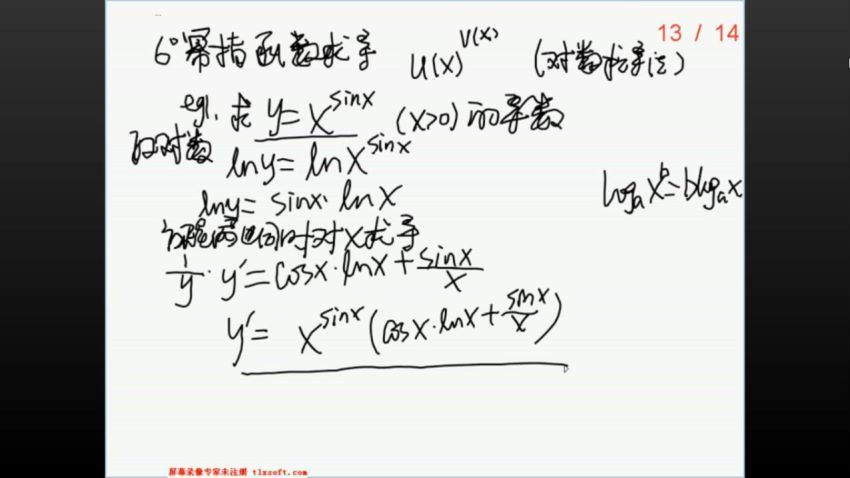 13 / 14
6° 幂指函数求导 u(x)^v(x) (对数求导法)
eg1. 求 y=x^sinx (x>0) 的导数
取对数 lny=lnx^sinx
lny=sinx·lnx
log_a x^b=blog_a x
方程两边同时对x求导
1/y·y′=cosx·lnx+sinx/x
y′= x^sinx(cosx·lnx+sinx/x)
屏幕录像专家未注册 tlxsoft.com